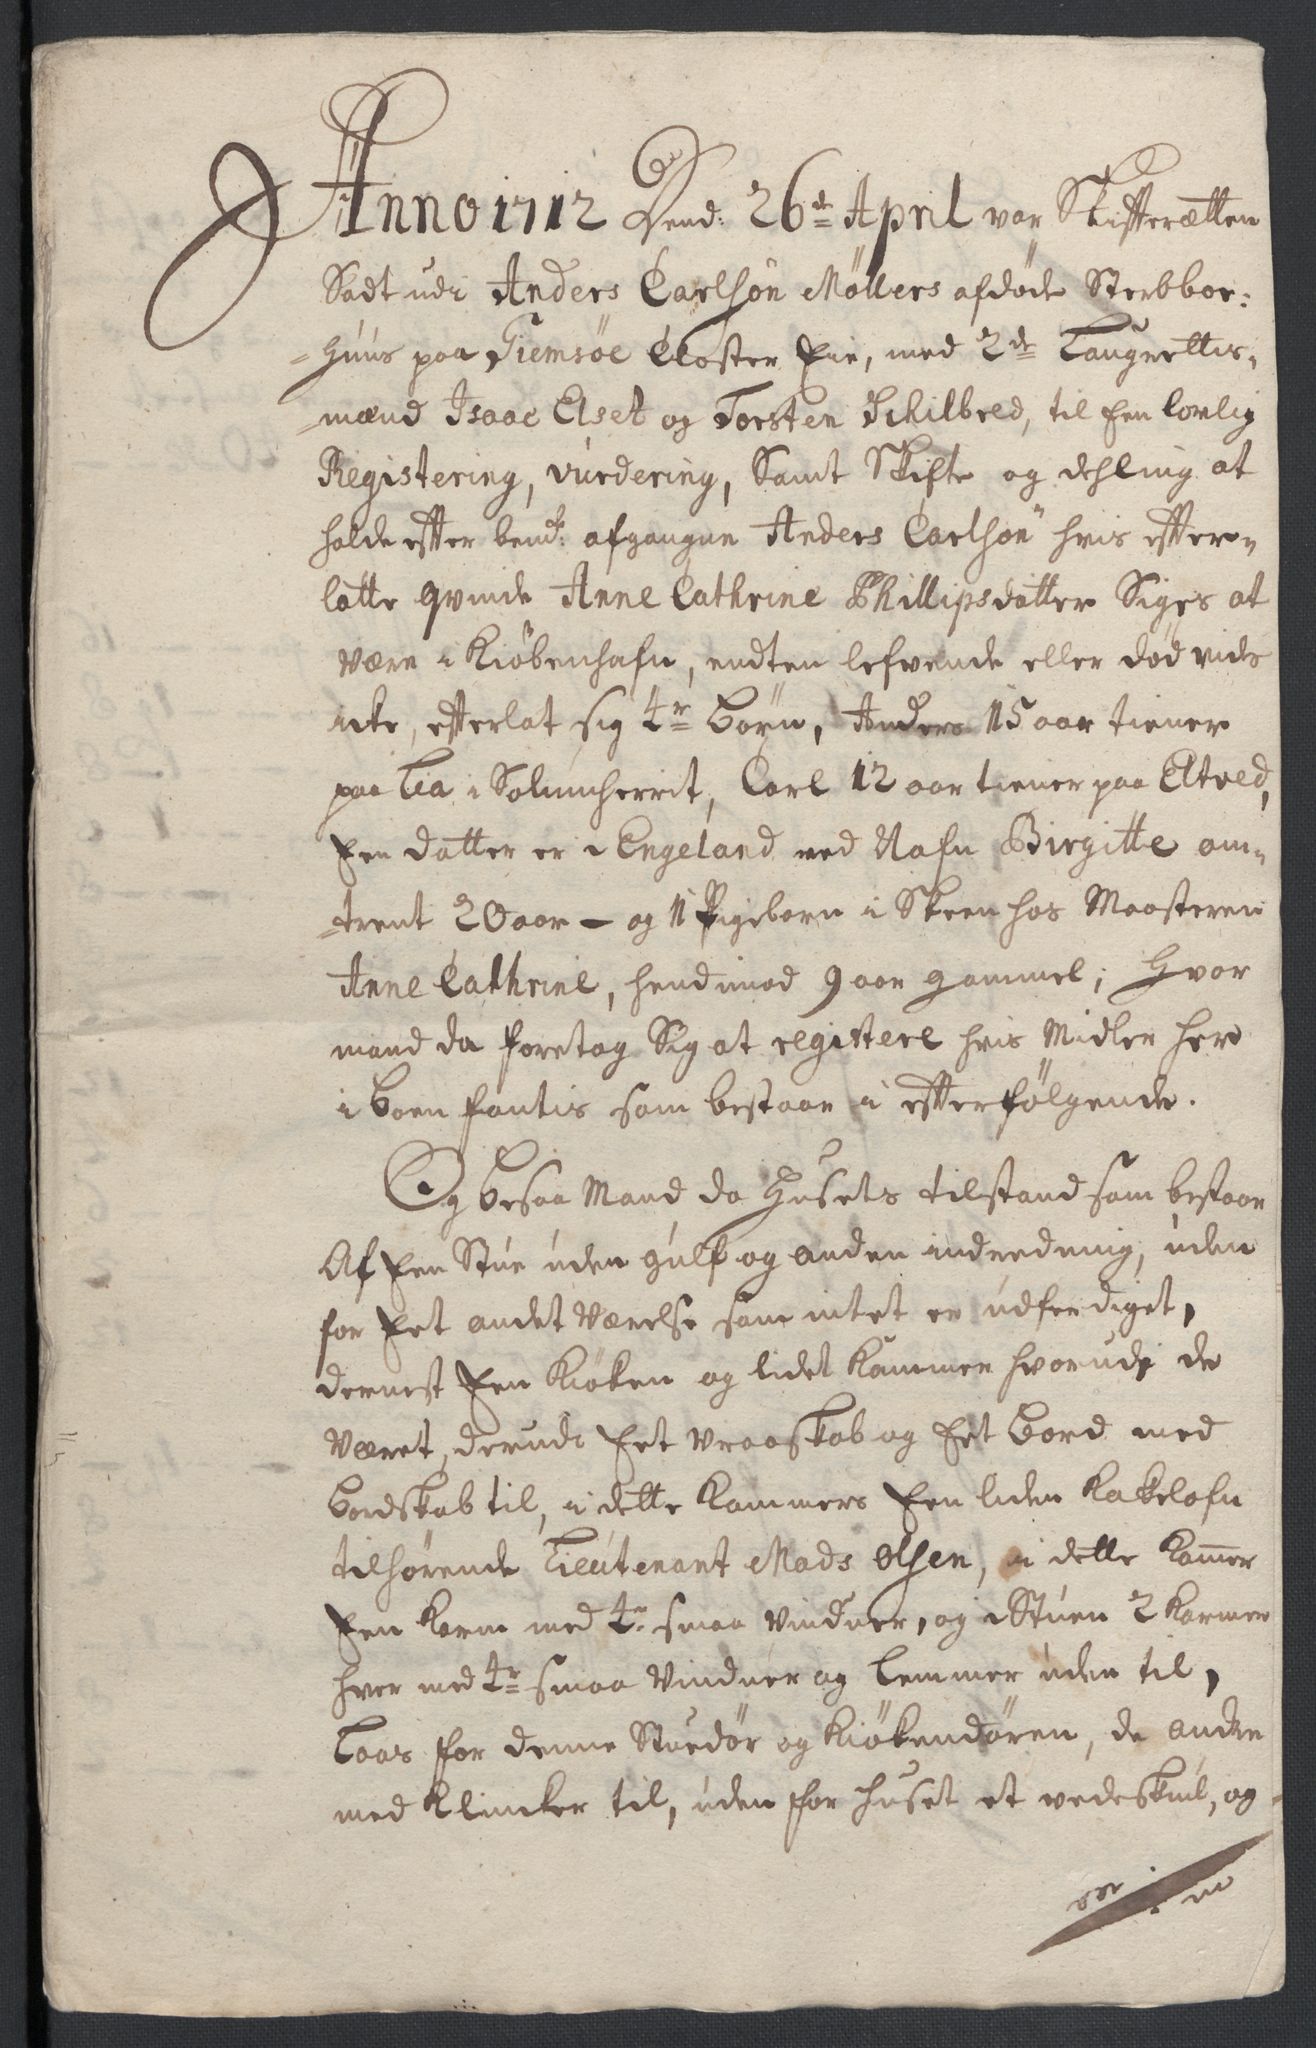 Anno 1712 Dend: 26de April var Skifteretten
Sadt udi Anders Carlsøn Møllers afdøde Sterbboe:
=Huus paa Giemsøe Closter Eie, med 2de Laugrettis=
=mænd Isaac Elset og Torsten Schilbred, til Een lovlig
Registering, vurdering, Samt Skifte og dehling at
holde efter bemte: afgangne Anders Carlsøn hvis efter=
latte qvinde Anne Cathrine Phillipsdatter Siges at
være i Kiøbenhafn, endten lefvende eller død vides
icke, efterlat sig 4re børn, Anders 15 aar tiener
paa Lia i Solumherrit, Carl 12 aar tiener paa Elved,
Een datter er i Engeland ved Nafn Birgitte om=
=trent 20 aar – og 1 Pigebarn i Skeen hos Moosteren
Anne Cathrine, hendimod 9 aar gammel; Hvor
mand da foretog Sig at registere hvis Midler her
i boen fantis som bestaar i efterfølgende.
Og besaa Mand da Husets tilstand som bestaar
Af Een Stue uden gulf og anden indredning, uden
for Eet andet Værelse som intet er udferdiget,
dernest Een Kiøken og lidet Kammer hvorudi de
Været, derudi Eet vraaskab og Eet bord med
bordskab til, i dette Kammers Een liden Kakelofn
tilhørende Lieutenant Mads Olsen, i dette Kammer
Een Karm med 4re smaa vinduer, og i Stuen 2 Karmer
hver med 4re smaa Vinduer og Lemmer uden til,
Laas for denne Stuedør og Kiøkendøren, de andre
med Klincker til, uden for huset et vedeskiul, og